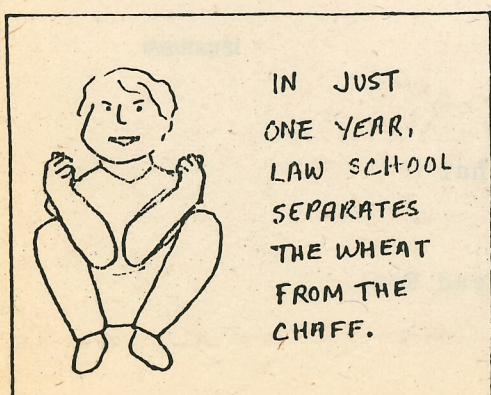 IN JUST
ONE YEAR,
LAW SCHOOL
SEPARATES
THE WHEAT
FROM THE
CHAFF.